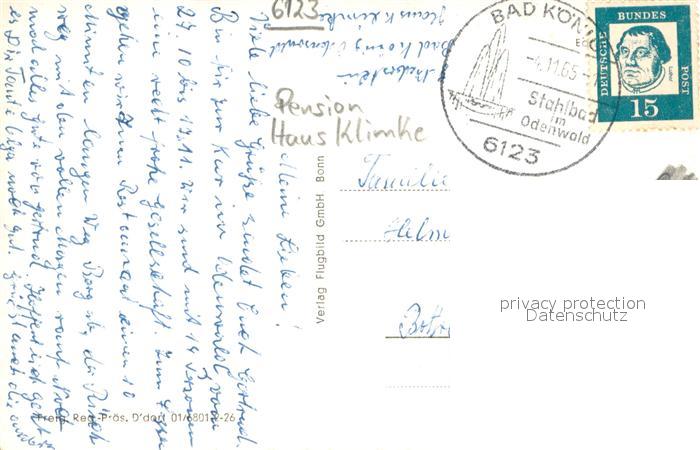 6123
Haus Klimke
Bad König Odenwald
BAD KÖNIG
-4.11.65-
Stahlbad
im
Odenwald
6123
DEUTSCHE BUNDES POST
Luther
15
Pension
Haus Klimke
Verlag Flugbild GmbH Bonn
Familie
Helm
Meine Lieben!
Viele liebe Grüße sendet Euch Gertrud.
Bin hier zur Kur im Odenwald vom
27.10 bis 17.11. Wir sind mit 14 Personen
eine recht frohe Gesellschaft. Zum Essen
gehen wir zum Restaurant einen 10
Minuten langen Weg Berg ab, der Rück
weg mit dem vollen Magen rauf. Noch
mal alles Gute von Gertrud. Hoffentlich geht
es Dir Tante Olga noch gut.
Freig. Reg.-Präs. D'dorf 01/6801 P-26
privacy protection
Datenschutz